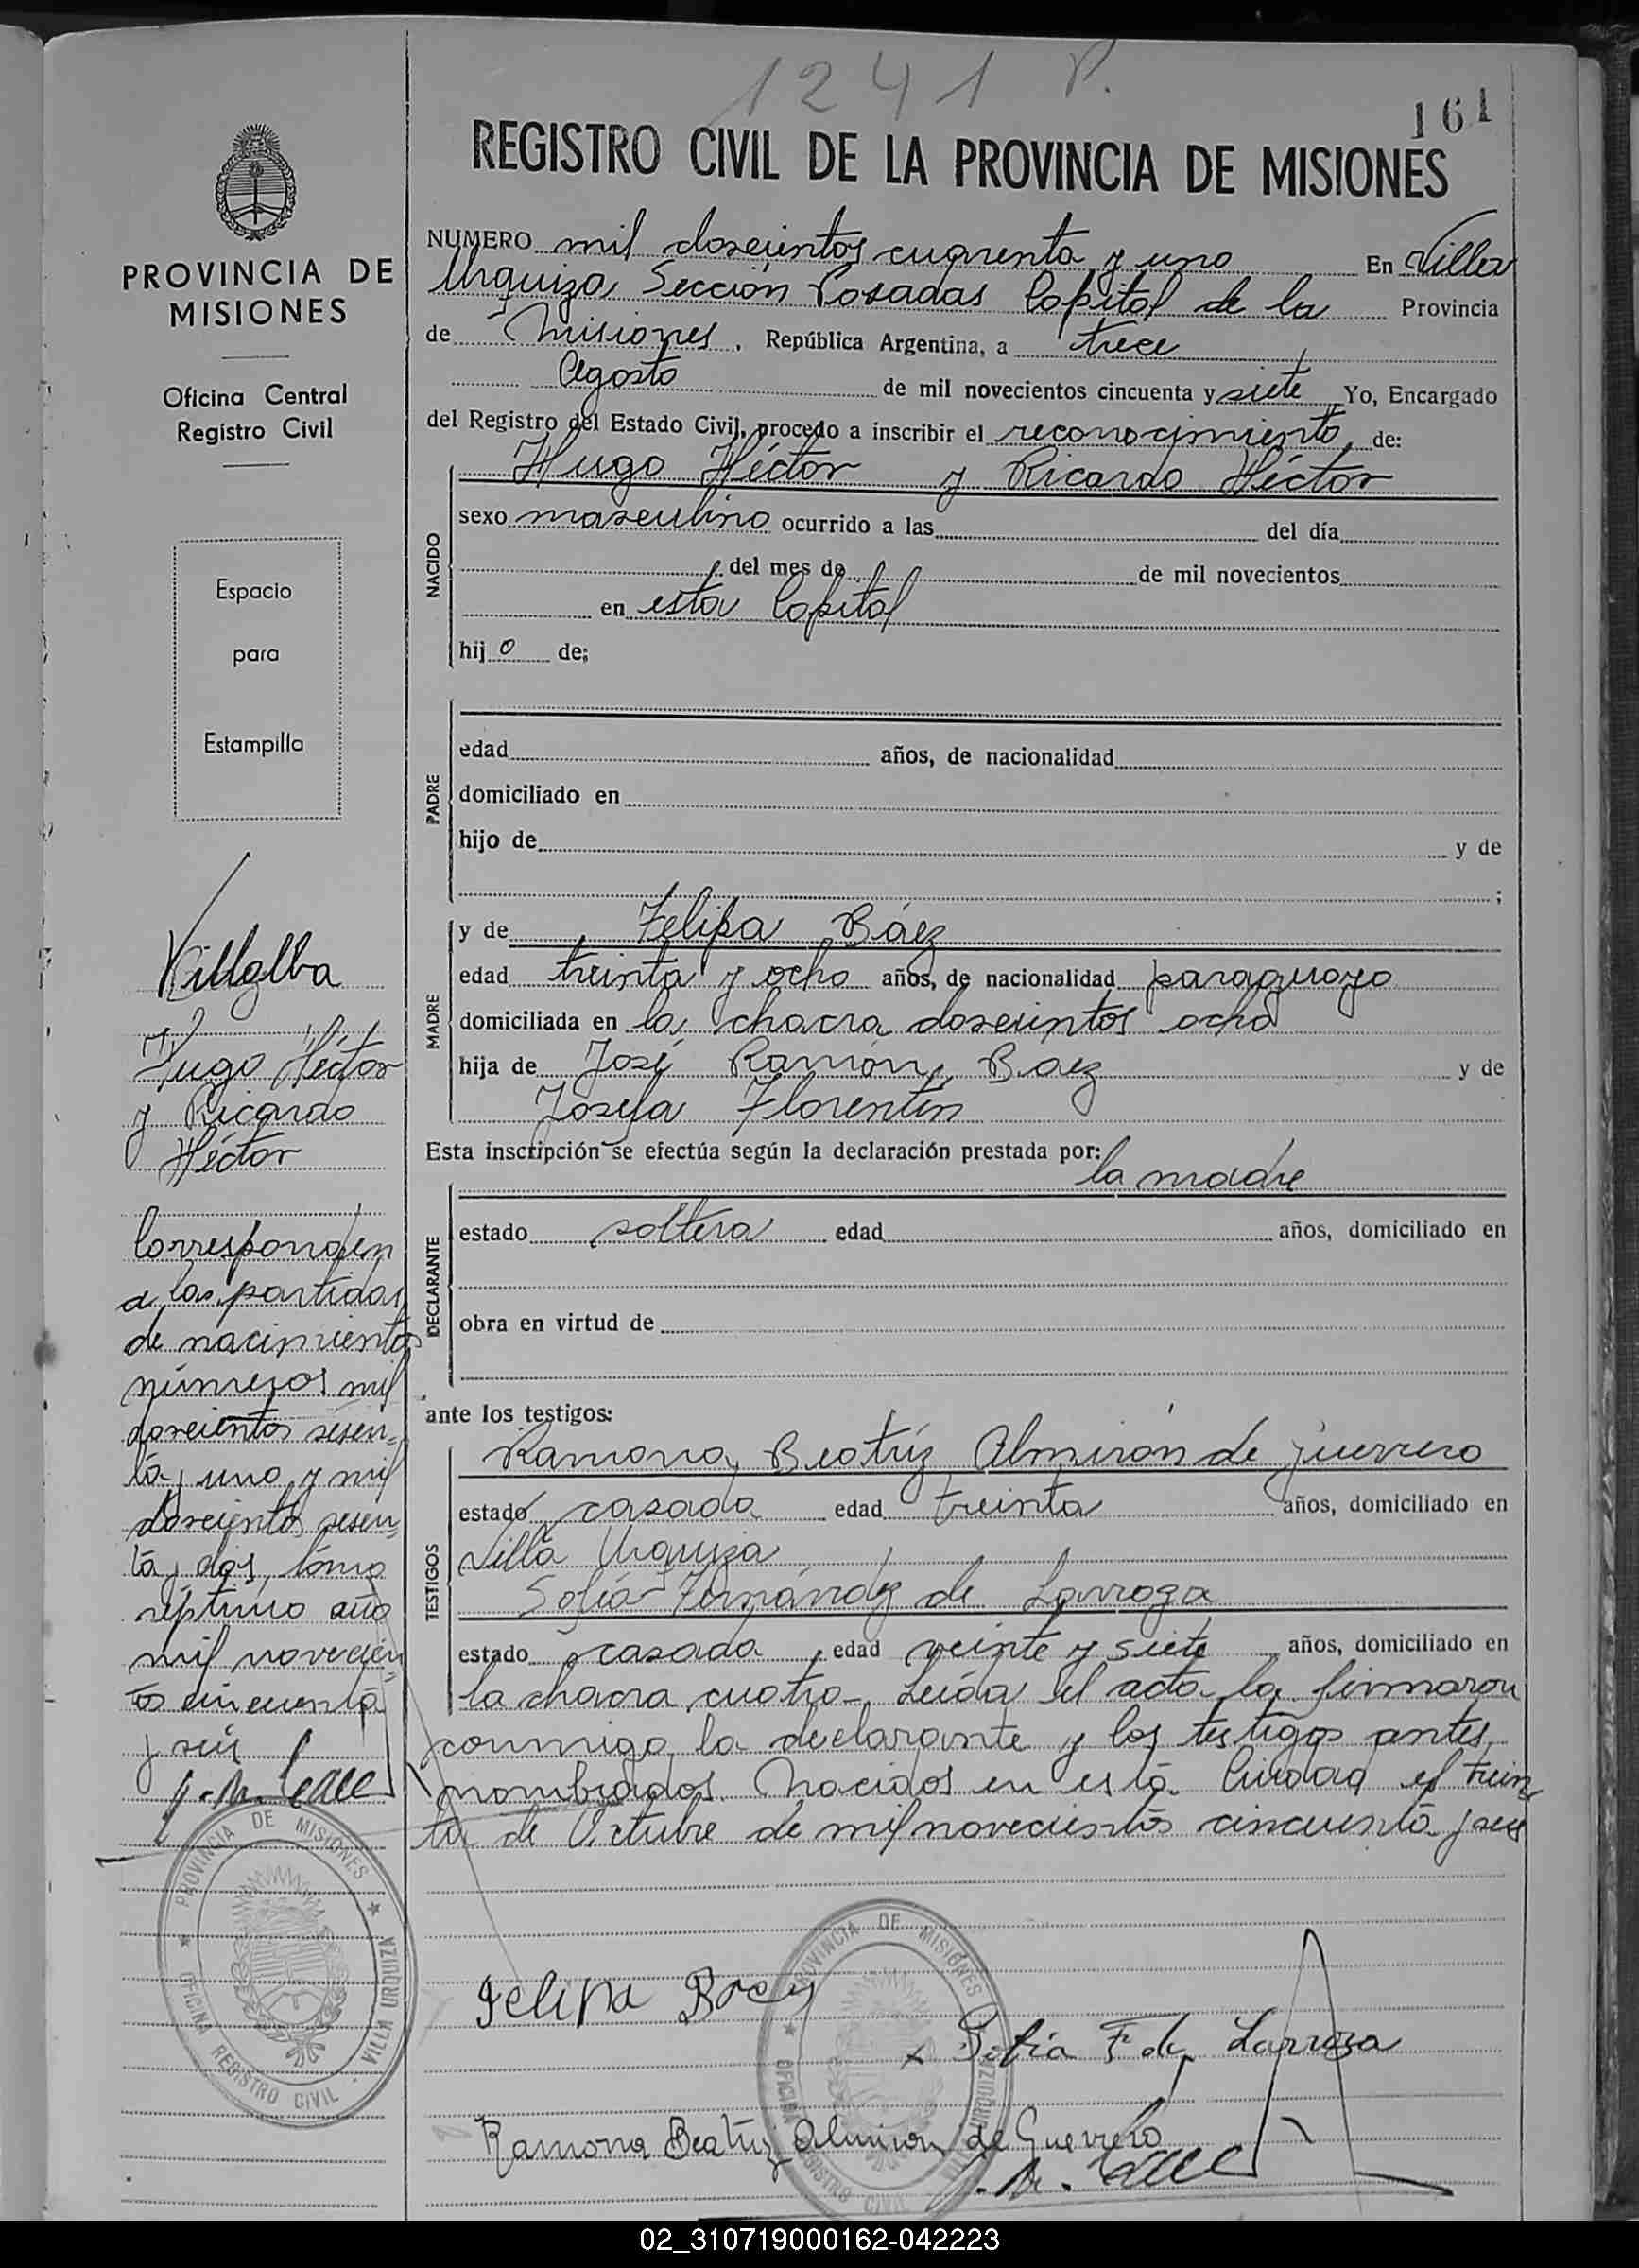 1241 P.
161
REGISTRO CIVIL DE LA PROVINCIA DE MISIONES
PROVINCIA DE
MISIONES
Oficina Central
Registro Civil
Espacio
para
Estampilla
Villalba
Hugo Héctor
y Ricardo
Héctor
Corresponden
a las partidas
de nacimientos
números mil
doscientos sesen=
ta y uno y mil
doscientos sesen=
ta y dos, tómo
séptimo año
mil novecien=
tos cincuenta
y seis
PROVINCIA DE MISIONES
OFICINA REGISTRO CIVIL VILLA URQUIZA
NUMERO mil doscientos cuarenta y uno En Villa
Urquiza Sección Posadas Capital de la Provincia
de Misiones, República Argentina, a trece
Agosto de mil novecientos cincuenta y siete Yo, Encargado
del Registro del Estado Civil, procedo a inscribir el reconocimiento de:
NACIDO
Hugo Héctor y Ricardo Héctor
sexo masculino ocurrido a las del día
del mes de de mil novecientos
en esta Capital
hijo de;
PADRE
edad años, de nacionalidad
domiciliado en
hijo de y de
;
MADRE
y de Felipa Báez
edad treinta y ocho años, de nacionalidad paraguaya
domiciliada en la chacra doscientos ocho
hija de José Ramón Baez y de
Josefa Florentín
Esta inscripción se efectúa según la declaración prestada por:
la madre
DECLARANTE
estado soltera edad años, domiciliado en
obra en virtud de
ante los testigos:
TESTIGOS
Ramona Beatríz Almirón de Guerrero
estado casada edad treinta años, domiciliado en
Villa Urquiza
Sofía Fernández de Larroza
estado casada edad veinte y siete años, domiciliado en
la chacra cuatro. Leída el acta la firmaron
conmigo la declarante y los testigos antes
nombrados. Nacidos en esta Ciudad el trein
ta de Octubre de mil novecientos cincuenta y seis
Felipa Baez
PROVINCIA DE MISIONES
OFICINA REGISTRO CIVIL VILLA URQUIZA
x Sofia F de Larroza
Ramona Beatriz Almiron de Guerrero
02_310719000162-042223